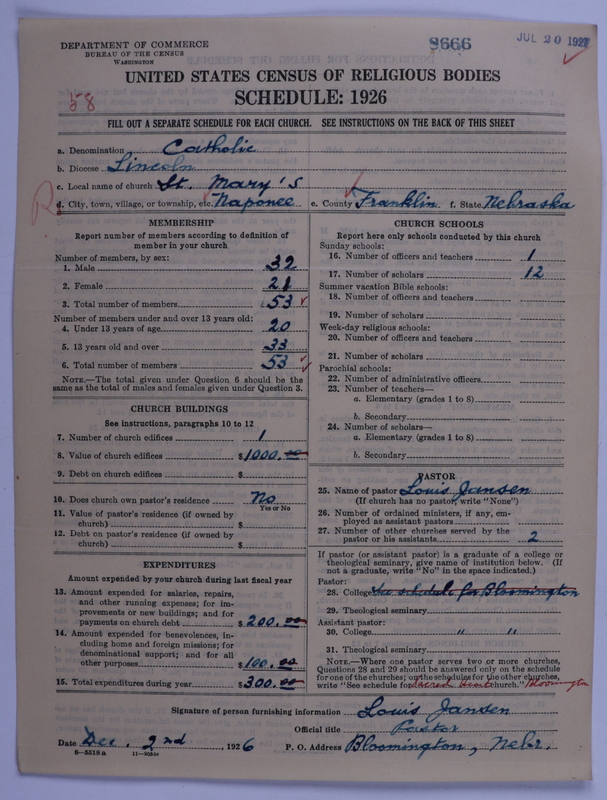 DEPARTMENT OF COMMERCE
BUREAU OF THE CENSUS
WASHINGTON
8666
JUL 20 1927
UNITED STATES CENSUS OF RELIGIOUS BODIES
SCHEDULE: 1926
58
FILL OUT A SEPARATE SCHEDULE FOR EACH CHURCH. SEE INSTRUCTIONS ON THE BACK OF THIS SHEET
a. Denomination Catholic
b. Diocese Lincoln
c. Local name of church St. Mary's
R d. City, town, village, or township, etc. Naponee e. County Franklin f. State Nebraska
MEMBERSHIP
Report number of members according to definition of
member in your church
Number of members, by sex:
1. Male 32
2. Female 21
3. Total number of members 53
Number of members under and over 13 years old:
4. Under 13 years of age 20
5. 13 years old and over 33
6. Total number of members 53
NOTE.—The total given under Question 6 should be the
same as the total of males and females given under Question 3.
CHURCH BUILDINGS
See instructions, paragraphs 10 to 12
7. Number of church edifices 1
8. Value of church edifices $1000.00
9. Debt on church edifices $
10. Does church own pastor's residence No
Yes or No
11. Value of pastor's residence (if owned by
church) $
12. Debt on pastor's residence (if owned by
church) $
EXPENDITURES
Amount expended by your church during last fiscal year
13. Amount expended for salaries, repairs,
and other running expenses; for im-
provements or new buildings; and for
payments on church debt $200.00
14. Amount expended for benevolences, in-
cluding home and foreign missions; for
denominational support; and for all
other purposes $100.00
15. Total expenditures during year $300.00
CHURCH SCHOOLS
Report here only schools conducted by this church
Sunday schools:
16. Number of officers and teachers 1
17. Number of scholars 12
Summer vacation Bible schools:
18. Number of officers and teachers
19. Number of scholars
Week-day religious schools:
20. Number of officers and teachers
21. Number of scholars
Parochial schools:
22. Number of administrative officers
23. Number of teachers—
a. Elementary (grades 1 to 8)
b. Secondary
24. Number of scholars—
a. Elementary (grades 1 to 8)
b. Secondary
PASTOR
25. Name of pastor Louis Jansen
(If church has no pastor, write "None")
26. Number of ordained ministers, if any, em-
ployed as assistant pastors
27. Number of other churches served by the
pastor or his assistants 2
If pastor (or assistant pastor) is a graduate of a college or
theological seminary, give name of institution below. (If
not a graduate, write "No" in the space indicated.)
Pastor:
28. College See schedule for Bloomington
29. Theological seminary
Assistant pastor:
30. College " "
31. Theological seminary
NOTE.—Where one pastor serves two or more churches,
Questions 28 and 29 should be answered only on the schedule
for one of the churches; on the schedules for the other churches,
write "See schedule for Sacred Heart church." Bloomington
Signature of person furnishing information Louis Jansen
Official title Pastor
Date Dec. 2nd, 1926 P. O. Address Bloomington, Nebr.